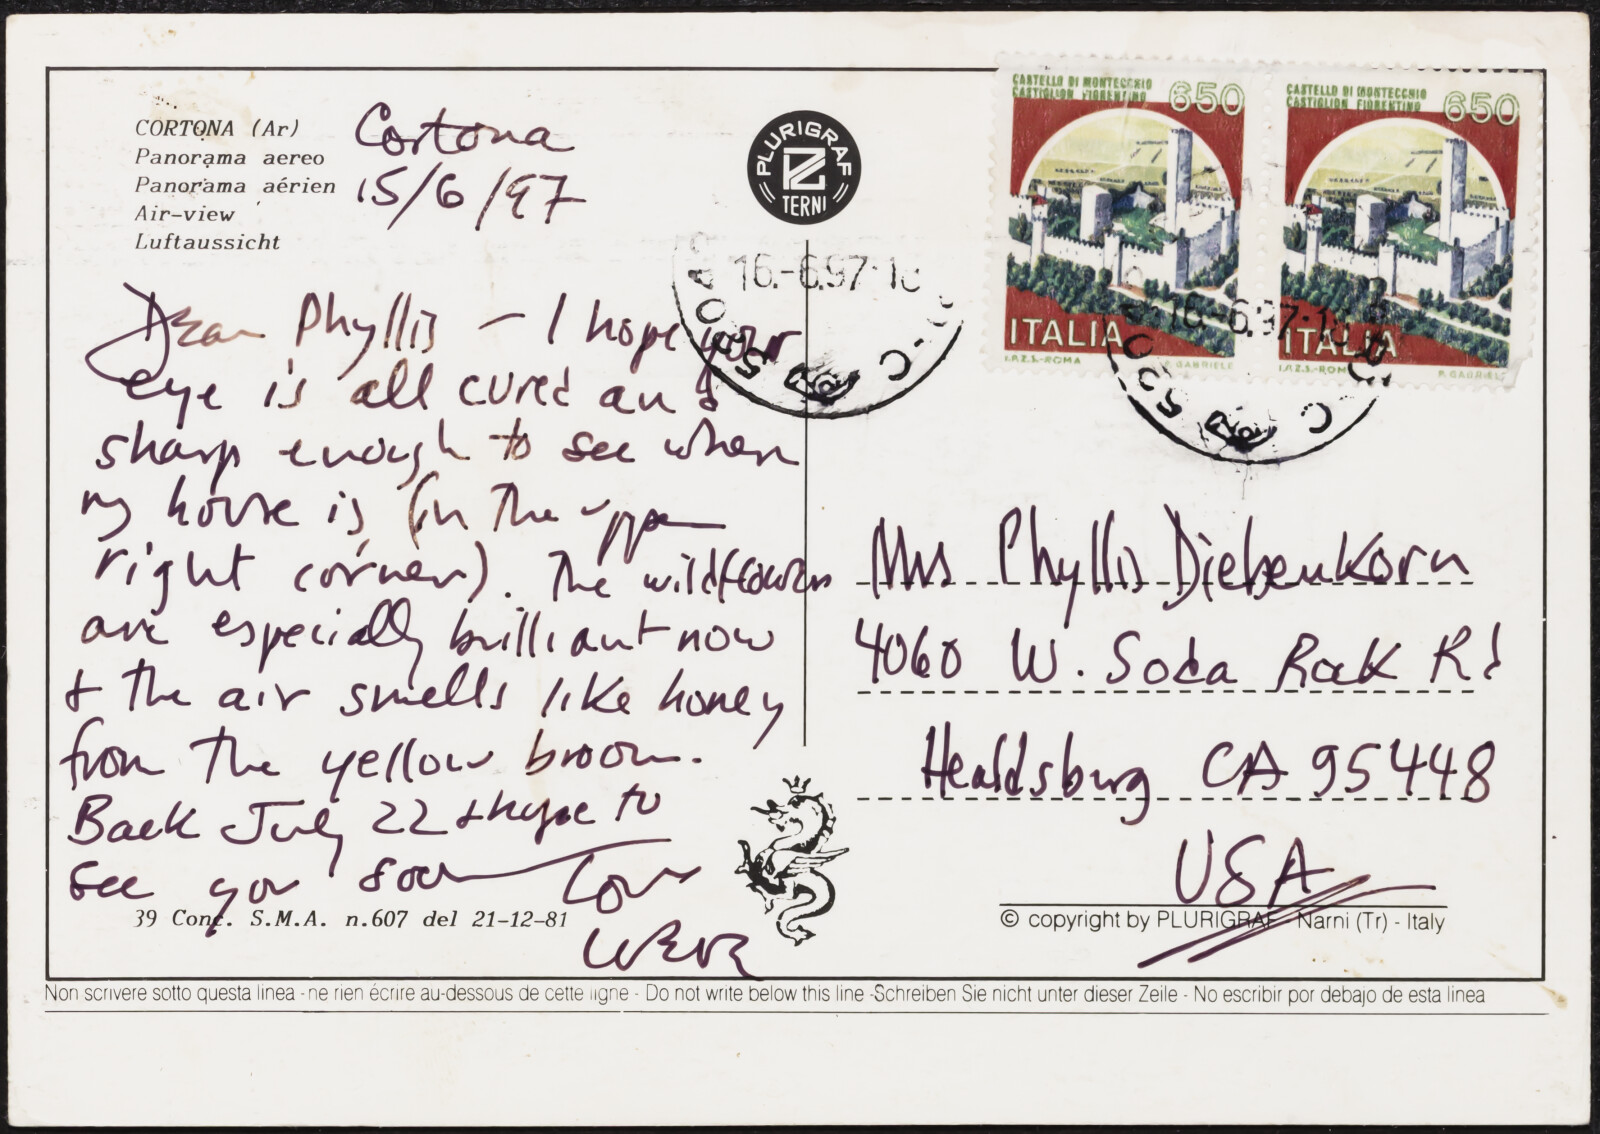 CORTONA (Ar)
Panorama aereo
Panorama aérien
Air-view
Luftaussicht
Cortona
15/6/97
Dear Phyllis – I hope your
eye is all cured and
sharp enough to see when
my house is (in the upper
right corner). The wildflowers
are especially brilliant now
& the air smells like honey
from the yellow broom.
Back July 22 & hope to
see you soon
Love
39 Conc. S.M.A. n.607 del 21-12-81
PLURIGRAF
TERNI
16.-6.97-18
CASTELLO DI MONTECCHIO
CASTIGLION FIORENTINO
650
ITALIA
I.P.Z.S.-ROMA
P. GABRIELE
CASTELLO DI MONTECCHIO
CASTIGLION FIORENTINO
650
ITALIA
I.P.Z.S.-ROMA
P. GABRIELE
16.-6.97-18
Mrs Phyllis Diebenkorn
4060 W. Soda Rock Rd
Healdsburg CA 95448
USA
© copyright by PLURIGRAF - Narni (Tr) - Italy
Non scrivere sotto questa linea - ne rien écrire au-dessous de cette ligne - Do not write below this line - Schreiben Sie nicht unter dieser Zeile - No escribir por debajo de esta linea